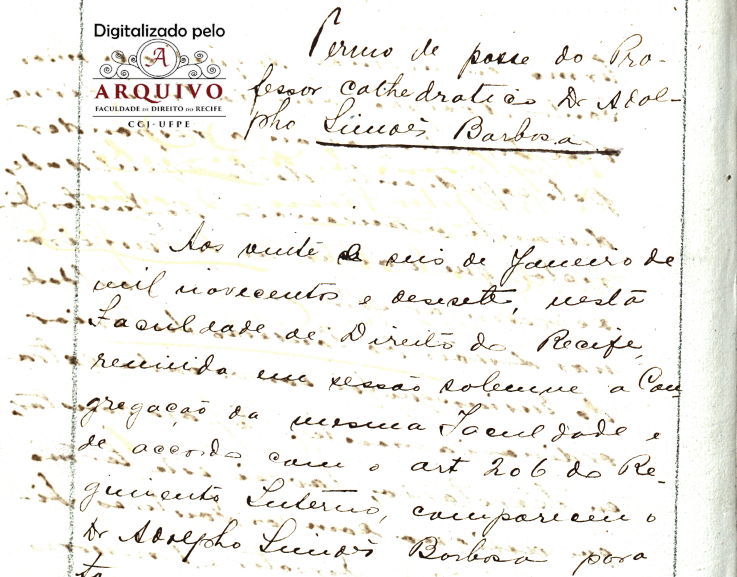 Digitalizado pelo
A
ARQUIVO
FACULDADE DE DIREITO DO RECIFE
CCJ-UFPE
Termo de posse do Pro-
fessor cathedratico Dr Adol-
pho Simões Barbosa
Aos vinte e seis de Janeiro de
mil novecentos e desesete, nesta
Faculdade de Direito do Recife,
reunida em sessão solemne a Con-
gregação da mesma Faculdade e
de accordo com o art 206 do Re-
gimento Interno, compareceu o
Dr Adolpho Simões Barbosa para